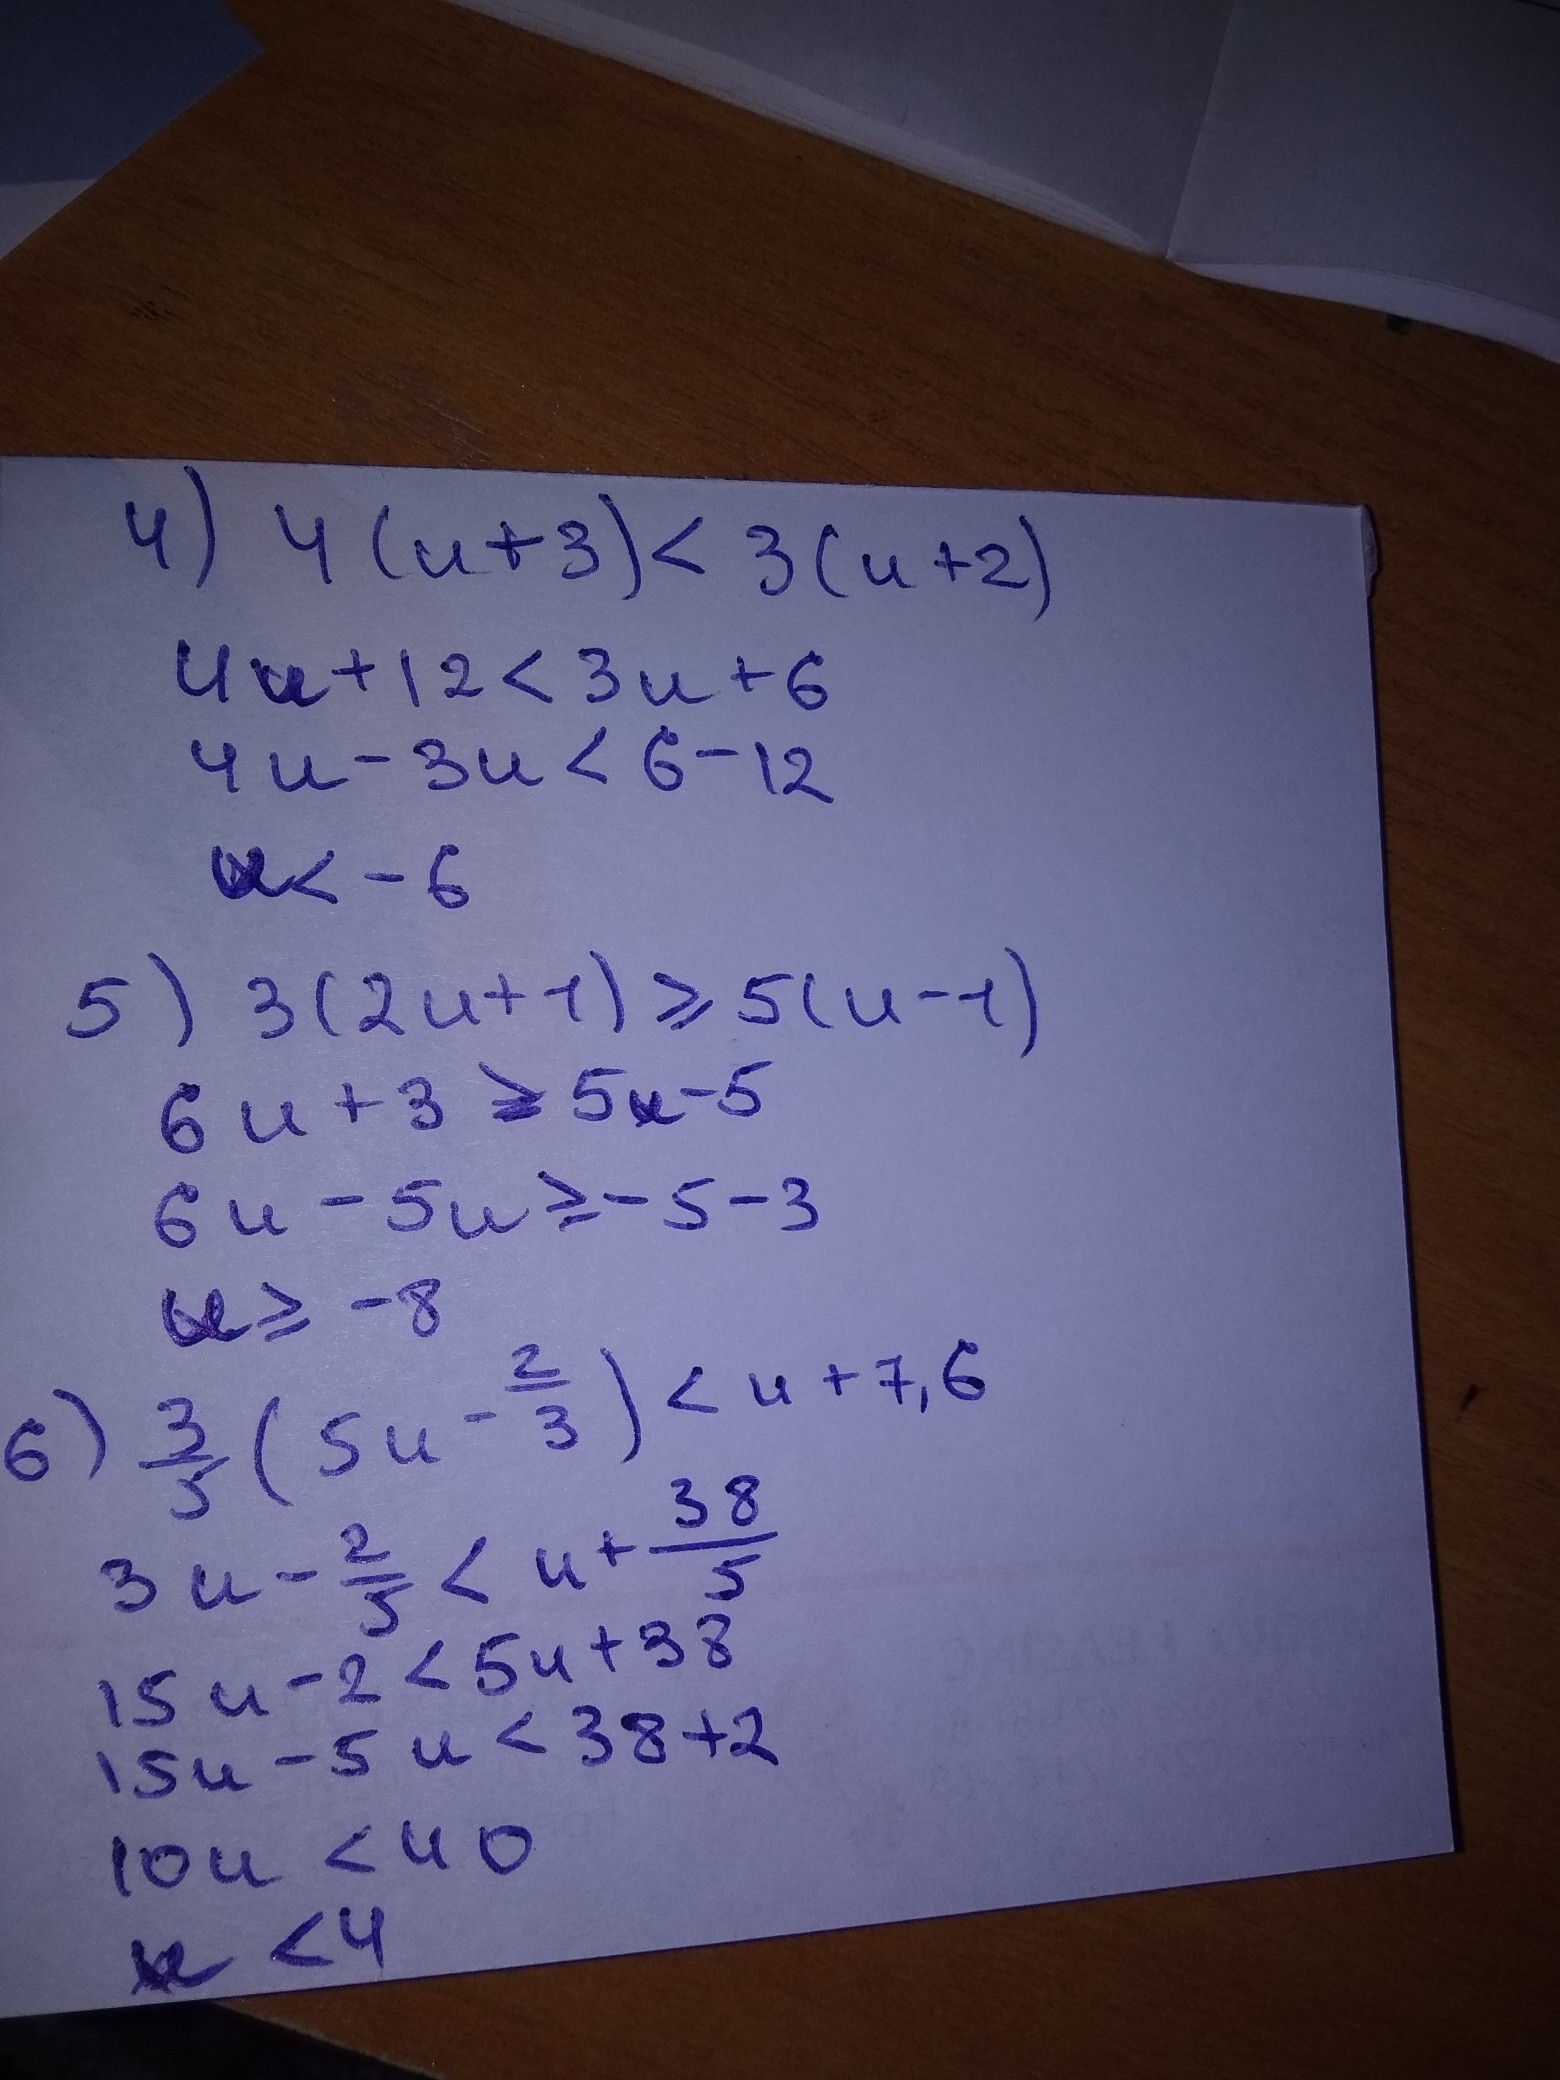 4) 4(u+3)<3(u+2)
4u+12<3u+6
4u-3u<6-12
u<-6
5) 3(2u+1)⩾5(u-1)
6u+3⩾5u-5
6u-5u⩾-5-3
u⩾-8
6) 3/5(5u-2/3)<u+7,6
3u-2/5<u+38/5
15u-2<5u+38
15u-5u<38+2
10u<40
u<4